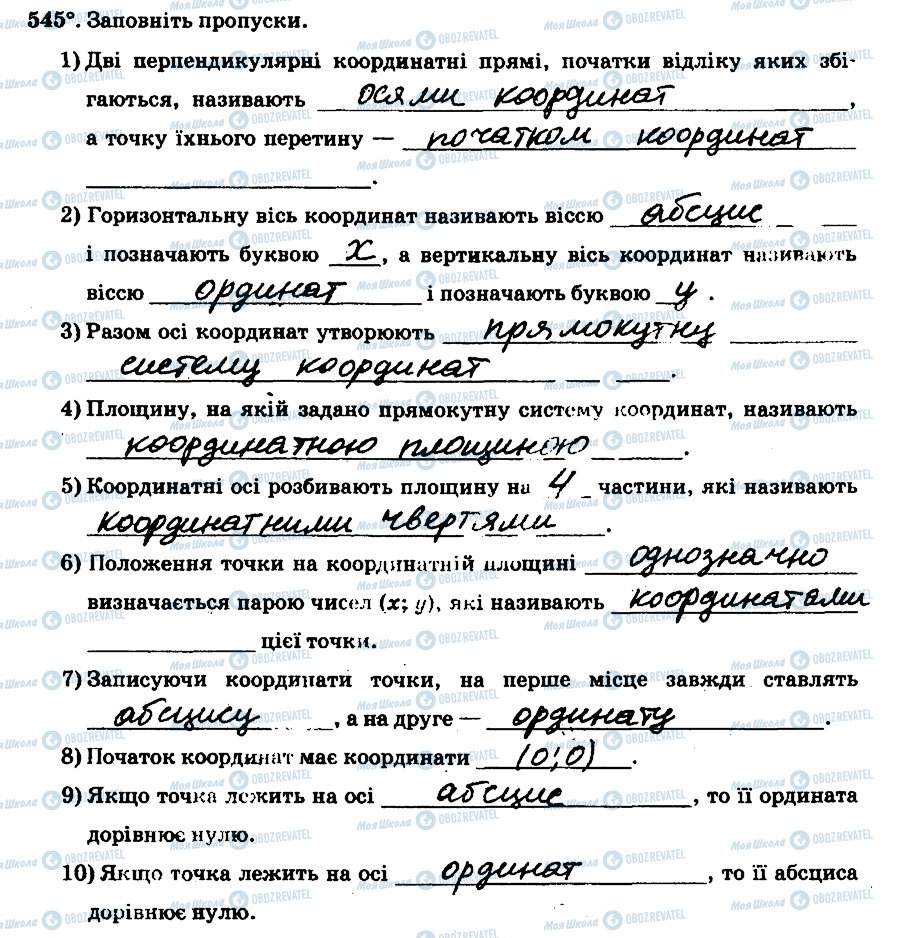 545°. Заповніть пропуски.
1) Дві перпендикулярні координатні прямі, початки відліку яких збі-
гаються, називають осями координат,
а точку їхнього перетину — початком координат
.
2) Горизонтальну вісь координат називають віссю абсцис
і позначають буквою x, а вертикальну вісь координат називають
віссю ординат і позначають буквою y.
3) Разом осі координат утворюють прямокутну
систему координат.
4) Площину, на якій задано прямокутну систему координат, називають
координатною площиною.
5) Координатні осі розбивають площину на 4 частини, які називають
координатними чвертями.
6) Положення точки на координатній площині однозначно
визначається парою чисел (x; y), які називають координатами
цієї точки.
7) Записуючи координати точки, на перше місце завжди ставлять
абсцису, а на друге — ординату.
8) Початок координат має координати (0;0).
9) Якщо точка лежить на осі абсцис, то її ордината
дорівнює нулю.
10) Якщо точка лежить на осі ординат, то її абсциса
дорівнює нулю.
Моя Школа OBOZREVATEL